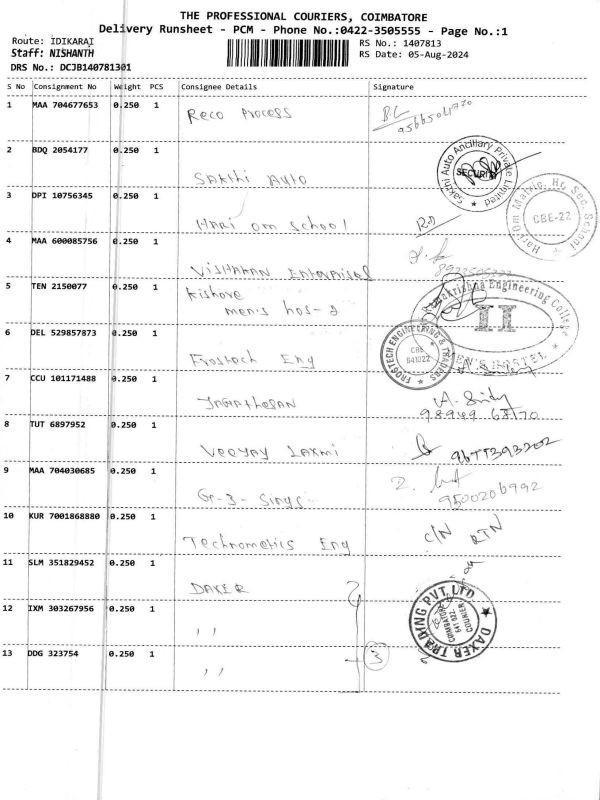 THE PROFESSIONAL COURIERS, COIMBATORE
Delivery Runsheet - PCM - Phone No.:0422-3505555 - Page No.:1
Route: IDIKARAI
RS No.: 1407813
Staff: NISHANTH
RS Date: 05-Aug-2024
DRS No.: DCJB140781301
S No Consignment No Weight PCS Consignee Details Signature
1 MAA 704677653 0.250 1 Reco Process
2 BDQ 2054177 0.250 1 Sakthi Auto
Sakthi Auto Ancillary Private Limited
SECURITY
3 DPI 10756345 0.250 1 Hari om school
Hari Om Matric. Hr. Sec. School
CBE-22
4 MAA 600085756 0.250 1
5 TEN 2150077 0.250 1 Kishore
men's hos-2
Engineering College
II
MEN'S HOSTEL
6 DEL 529857873 0.250 1 Frostech Eng
FROGTECH ENGINEERING & TRADERS
CBE
641022
7 CCU 101171488 0.250 1 Jagathesan
8 TUT 6897952 0.250 1 Veejay Laxmi
9677393202
9 MAA 704030685 0.250 1
9500206992
10 KUR 7001868880 0.250 1 Technometics Eng
C/N RTN
11 SLM 351829452 0.250 1 DAXER
DAXER TRADING PVT LTD
COIMBATORE
641 022.
COURIER
12 IXM 303267956 0.250 1 ,,
13 DDG 323754 0.250 1 ,,
3